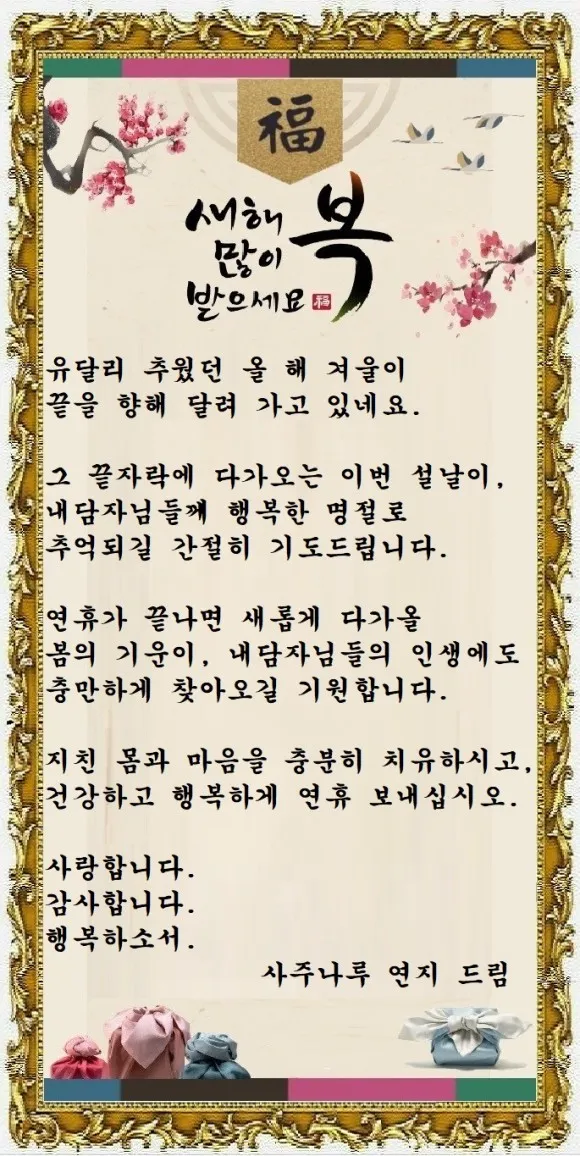 福
새해
복
많이
받으세요 福
유달리 추웠던 올 해 겨울이
끝을 향해 달려 가고 있네요.
그 끝자락에 다가오는 이번 설날이,
내담자님들께 행복한 명절로
추억되길 간절히 기도드립니다.
연휴가 끝나면 새롭게 다가올
봄의 기운이, 내담자님들의 인생에도
충만하게 찾아오길 기원합니다.
지친 몸과 마음을 충분히 치유하시고,
건강하고 행복하게 연휴 보내십시오.
사랑합니다.
감사합니다.
행복하소서.
사주나루 연지 드림